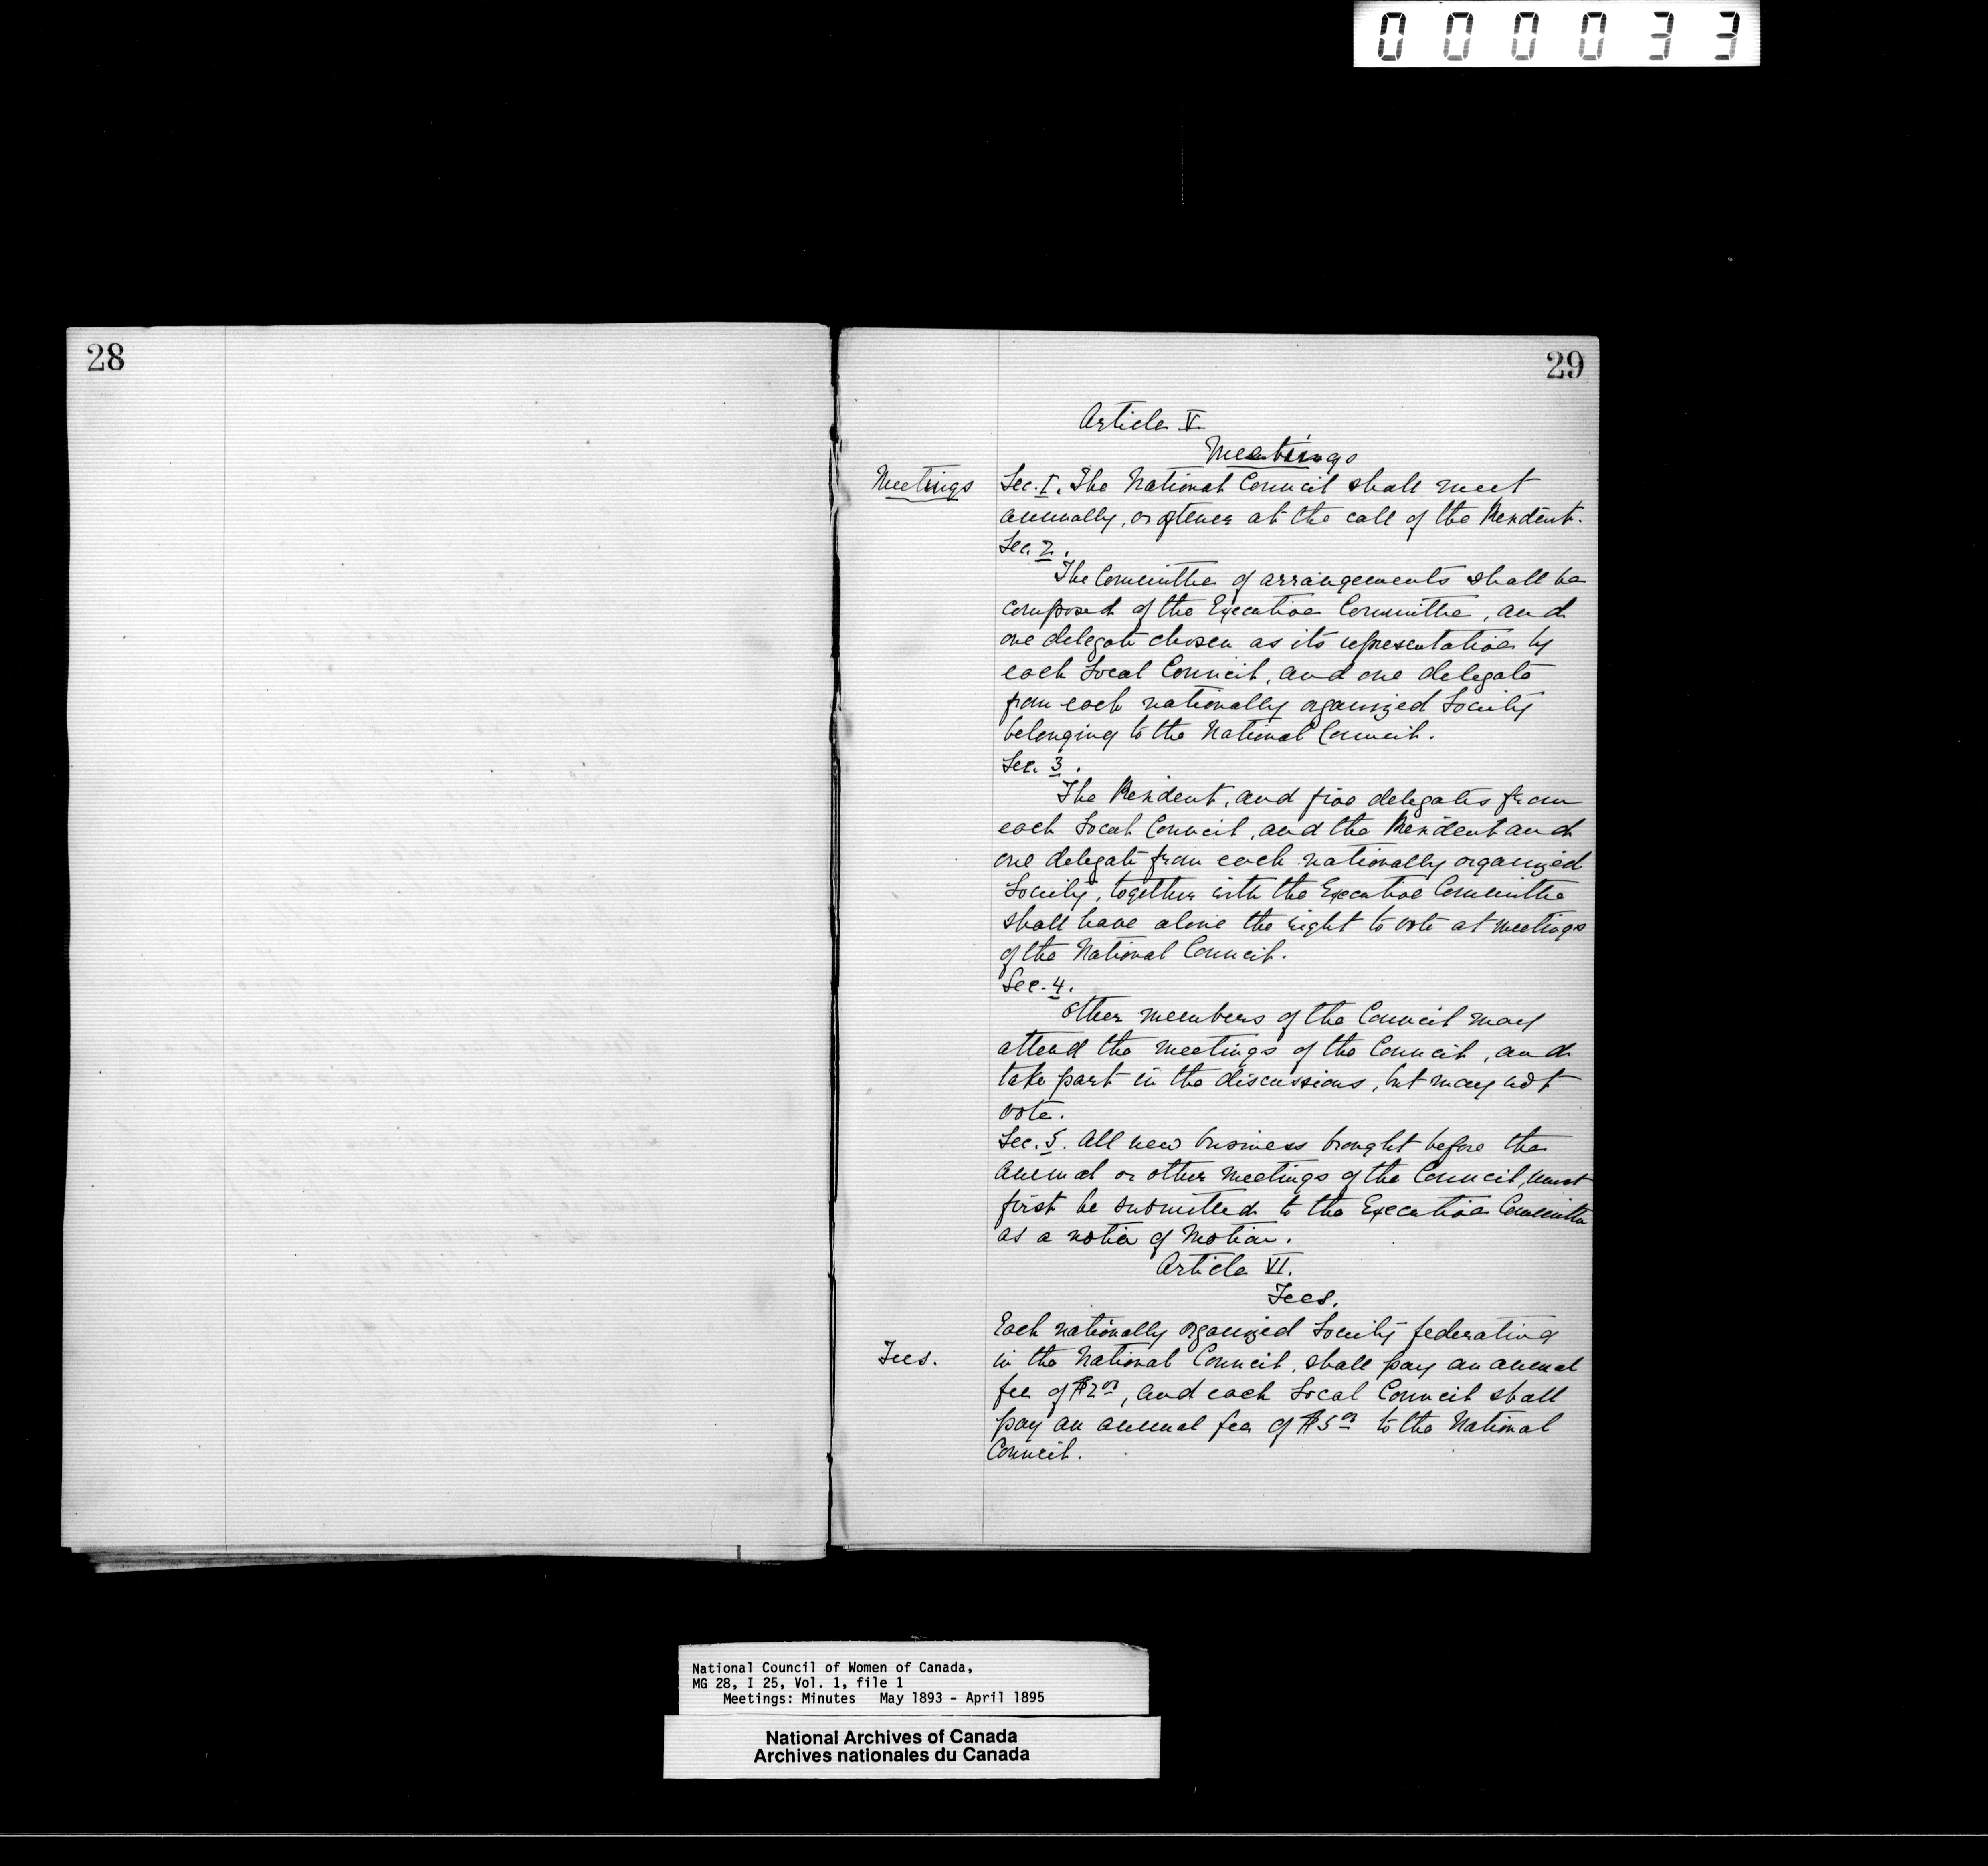 000033
28
29
Article V
Meetings
Meetings
Sec. I. The National Council shall meet
annually, or oftener at the call of the President.
Sec. 2.
The Committee of arrangements shall be
composed of the Executive Committee, and
one delegate chosen as its representative by
each Local Council, and one delegate
from each nationally organized Society
belonging to the National Council.
Sec. 3.
The President, and five delegates from
each Local Council, and the President and
one delegate from each nationally organized
Society, together with the Executive Committee
shall have alone the right to vote at meetings
of the National Council.
Sec. 4.
Other members of the Council may
attend the meetings of the Council, and
take part in the discussions, but may not
vote.
Sec. 5. All new business brought before the
Annual or other Meetings of the Council, must
first be submitted to the Executive Committee
as a notice of Motion.
Article VI.
Fees.
Each nationally organized Society federating
Fees.
in the National Council, shall pay an annual
fee of $2.00, and each Local Council shall
pay an annual fee of $5.00 to the National
Council.
National Council of Women of Canada,
MG 28, I 25, Vol. 1, file 1
Meetings: Minutes May 1893 - April 1895
National Archives of Canada
Archives nationales du Canada